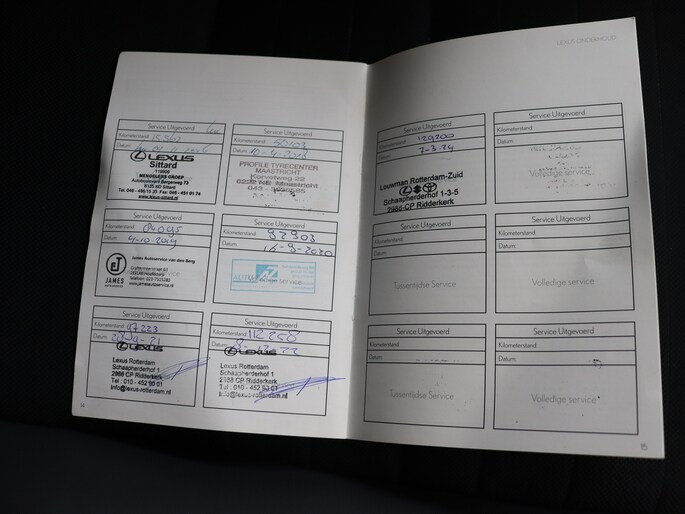 LEXUS ONDERHOUD
Service Uitgevoerd
Kilometerstand:
Datum:
LEXUS
Sittard
MENGELERS GROEP
6135 KD Sittard
www.lexus-sittard.nl
Service Uitgevoerd
Kilometerstand
Datum:
PROFILE TYRECENTER
MAASTRICHT
Korvetweg 22
Maastricht
Service Uitgevoerd
Kilometerstand
Datum:
4-10-2019
James Autoservice van den Berg
JAMES
www.jamesautoservice.nl
Service Uitgevoerd
Kilometerstand:
92903
Datum:
16-9-2020
Service Uitgevoerd
Kilometerstand
97223
Datum:
LEXUS
Lexus Rotterdam
Schaapherderhof 1
2988 CP Ridderkerk
Tel : 010 - 452 90 01
info@lexus-rotterdam.nl
Service Uitgevoerd
Kilometerstand
112250
Datum:
LEXUS
Lexus Rotterdam
Schaapherderhof 1
2988 CP Ridderkerk
Tel : 010 - 452 90 01
info@lexus-rotterdam.nl
14
Service Uitgevoerd
Kilometerstand:
129200
Datum:
7-3-24
Louwman Rotterdam-Zuid
Schaapherderhof 1-3-5
2988 CP Ridderkerk
Service Uitgevoerd
Kilometerstand:
Datum:
Volledige service
Service Uitgevoerd
Kilometerstand:
Datum:
Tussentijdse Service
Service Uitgevoerd
Kilometerstand:
Datum:
Volledige service
Service Uitgevoerd
Kilometerstand:
Datum:
Tussentijdse Service
Service Uitgevoerd
Kilometerstand:
Datum:
Volledige service
15